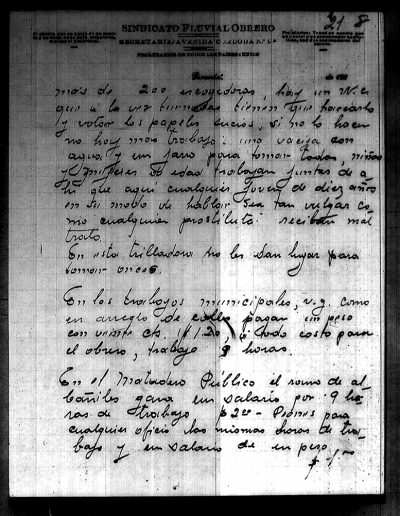 21 8
SINDICATO FLUVIAL OBRERO
SECRETARIA: AVENIDA CORDOBA N.o
PROLETARIOS DE TODOS LOS PAISES: UNIOS
de 192
más de 200 escogedoras, hay un W.c
que a la vez turnadas tienen que
y votar los papeles sucios, si no lo hacen
no hay más trabajo: una vacija con
agua y un jarro para tomar todas, niñas
y mujeres de edad trabajan juntas de a
hi que aquí cualquier joven de diez años
en su modo de hablar sea tan vulgar co
mo cualquier prostituta: reciben mal
trato
En esta trilladora no les dan lugar para
tomar onces.
En los trabajos municipales, v.g. como
en arreglo de calles pagan un peso
con veinte cts. $1.20, a todo costo para
el obrero, trabajo 9 horas.
En el Matadero Público el ramo de al-
bañiles gana un salario por 9 ho
ras de trabajo $ 2.00 - Peones para
cualquier oficio las mismas horas de tra-
bajo y un salario de un peso